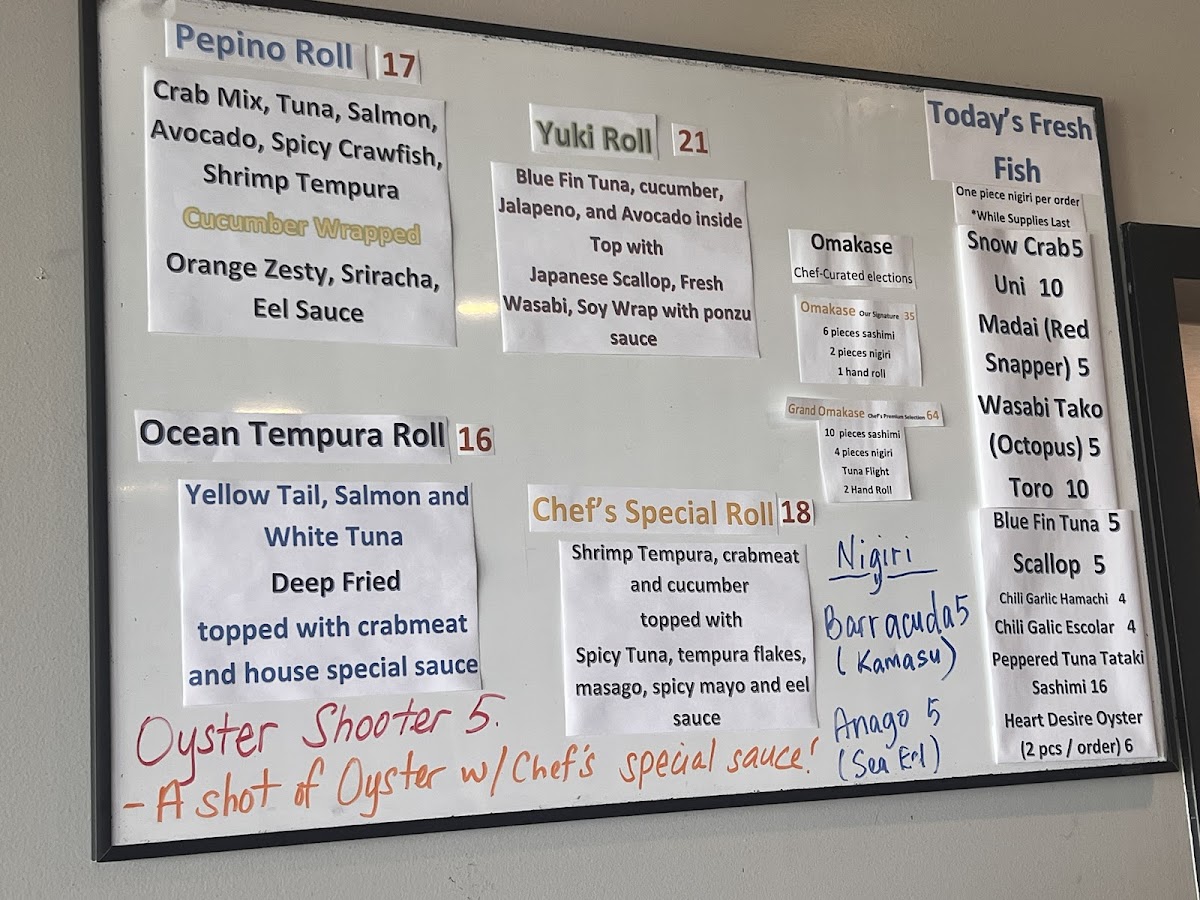 Pepino Roll 17
Crab Mix, Tuna, Salmon,
Avocado, Spicy Crawfish,
Shrimp Tempura
Cucumber Wrapped
Orange Zesty, Sriracha,
Eel Sauce
Yuki Roll 21
Blue Fin Tuna, cucumber,
Jalapeno, and Avocado inside
Top with
Japanese Scallop, Fresh
Wasabi, Soy Wrap with ponzu
sauce
Ocean Tempura Roll 16
Yellow Tail, Salmon and
White Tuna
Deep Fried
topped with crabmeat
and house special sauce
Chef's Special Roll 18
Shrimp Tempura, crabmeat
and cucumber
topped with
Spicy Tuna, tempura flakes,
masago, spicy mayo and eel
sauce
Oyster Shooter 5.
- A shot of Oyster w/ Chef's special sauce!
Omakase
Chef-Curated elections
Omakase Our Signature 35
6 pieces sashimi
2 pieces nigiri
1 hand roll
Grand Omakase Chef's Premium Selection 64
10 pieces sashimi
4 pieces nigiri
Tuna Flight
2 Hand Roll
Nigiri
Barracuda 5
(Kamasu)
Anago 5
(Sea Eel)
Today's Fresh
Fish
One piece nigiri per order
*While Supplies Last
Snow Crab 5
Uni 10
Madai (Red
Snapper) 5
Wasabi Tako
(Octopus) 5
Toro 10
Blue Fin Tuna 5
Scallop 5
Chili Garlic Hamachi 4
Chili Galic Escolar 4
Peppered Tuna Tataki
Sashimi 16
Heart Desire Oyster
(2 pcs / order) 6